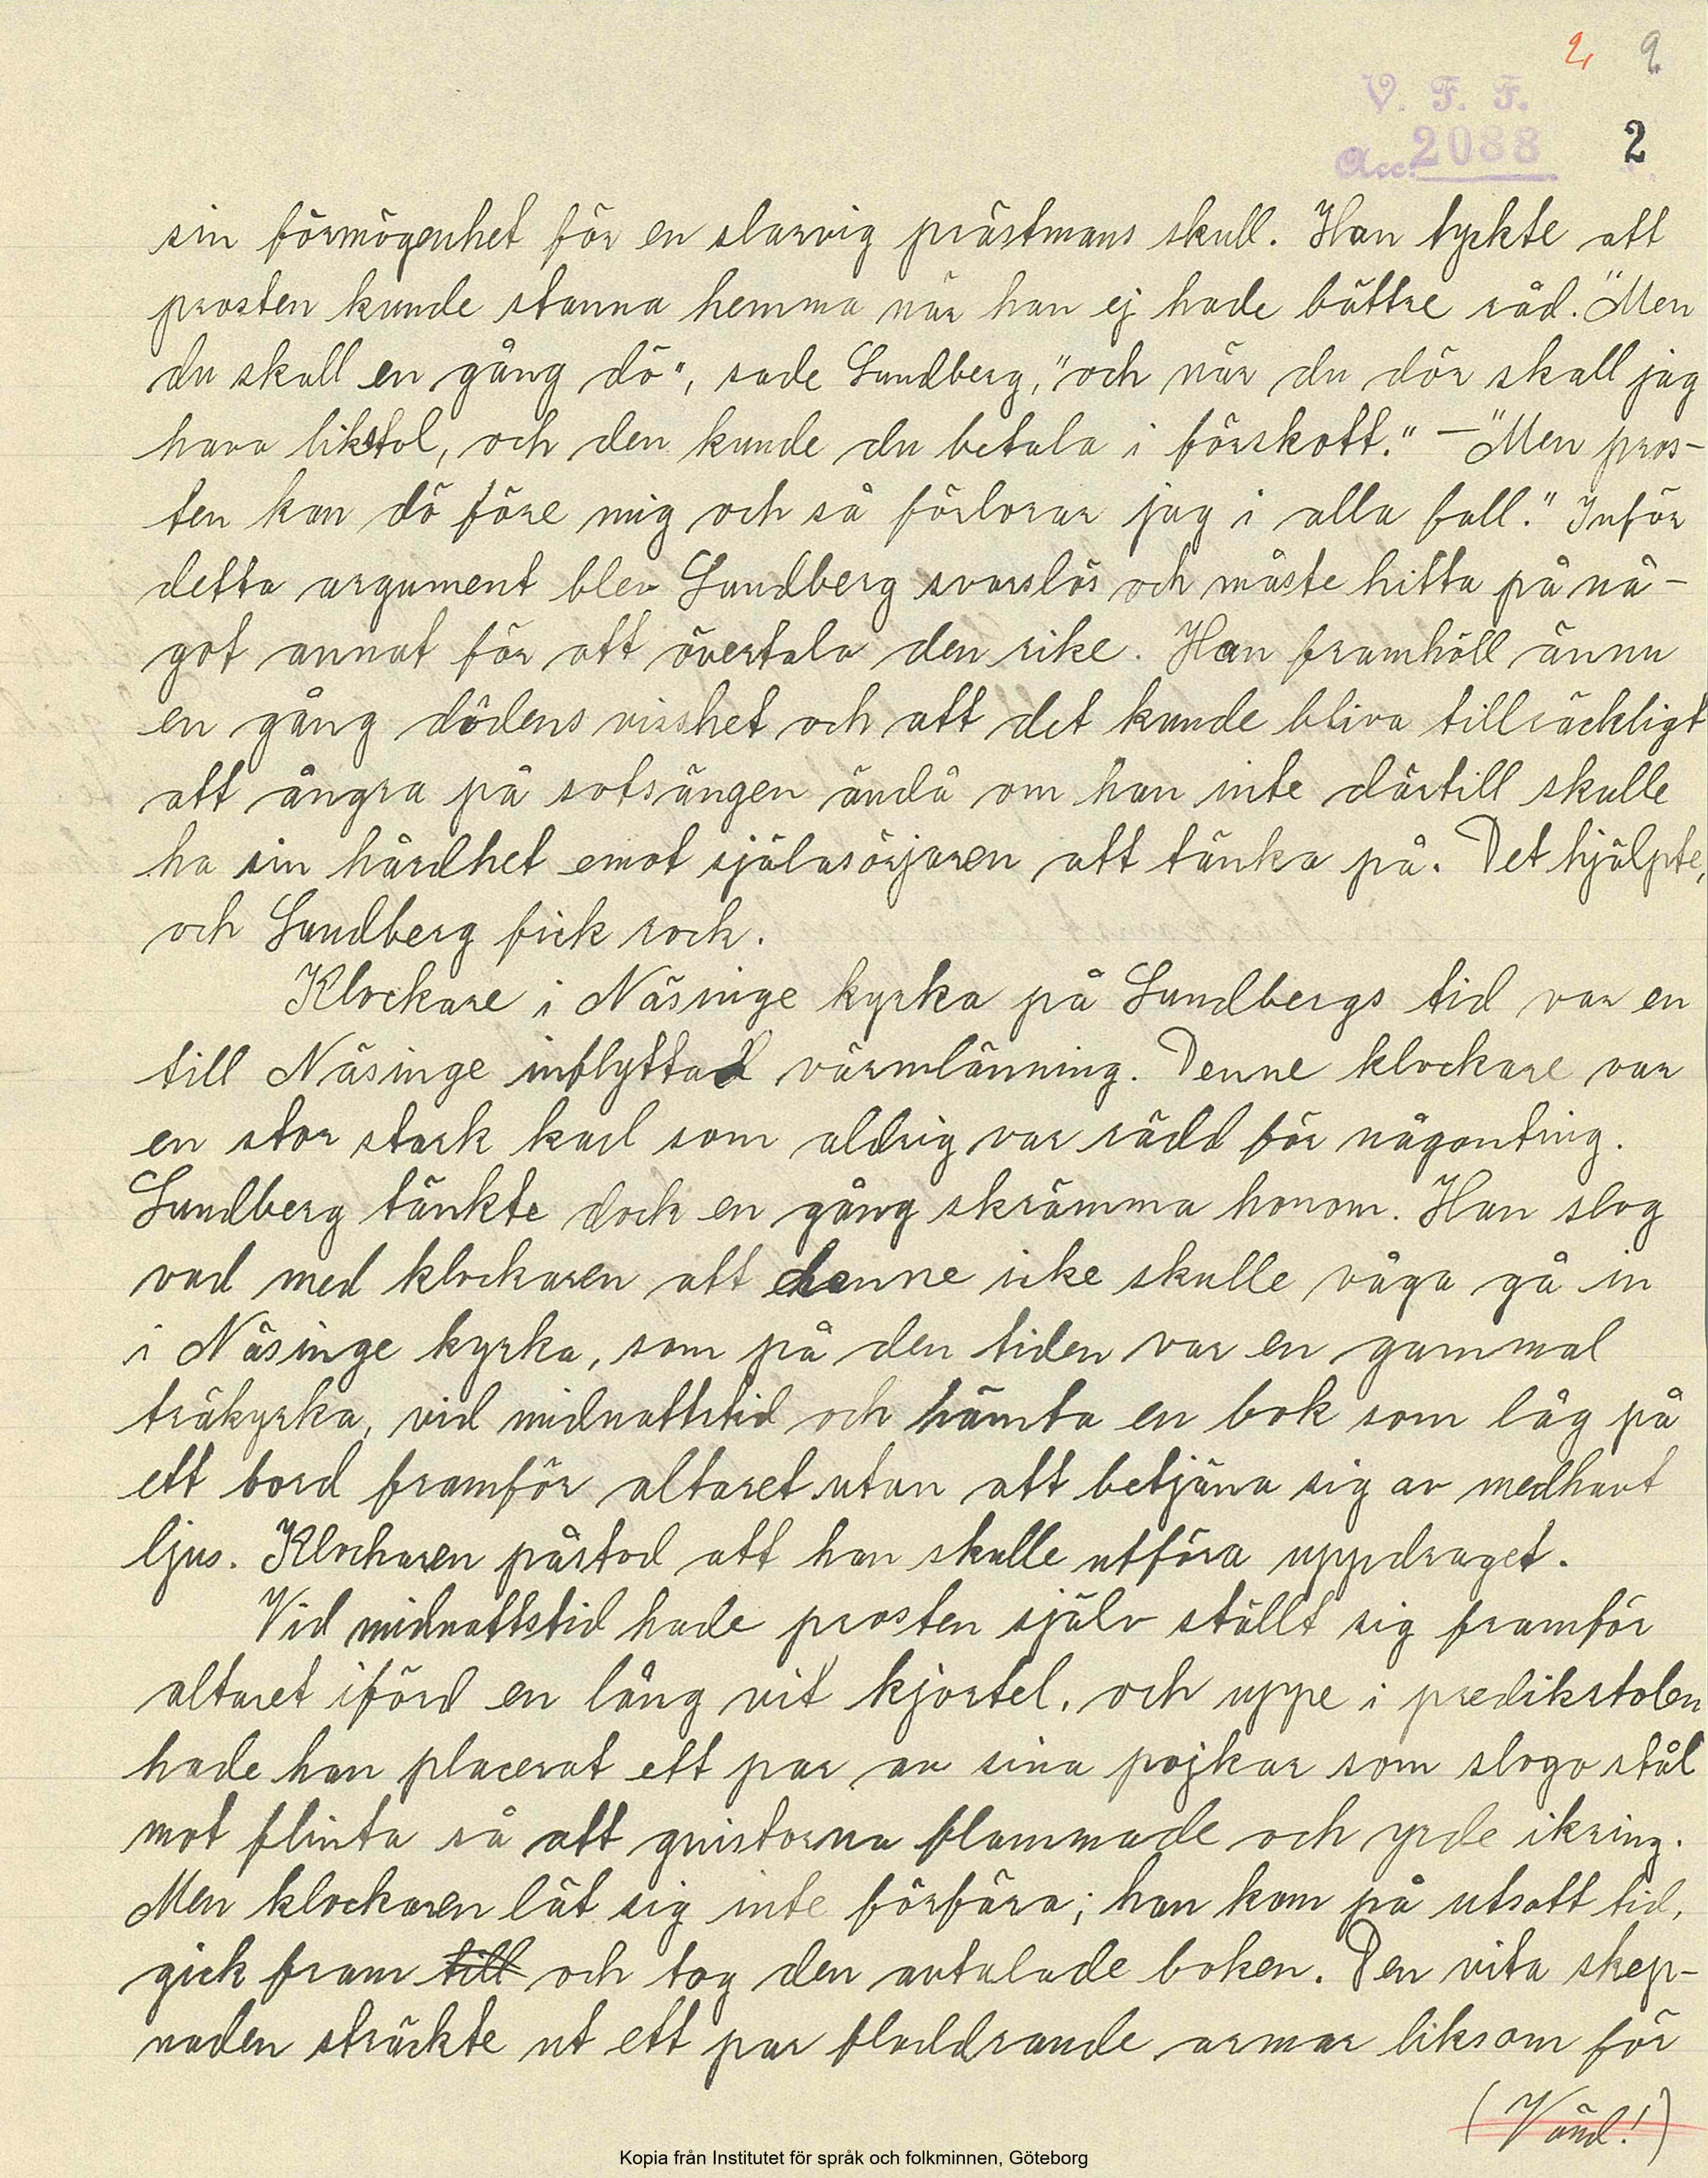 2, 2
V. F. F.
Acc. 2088 2
sin förmögenhet för en slarvig prästmans skull. Han tyckte att
prosten kunde stanna hemma när han ej hade bättre råd. "Men
du skall en gång dö", sade Sundberg, "och när du dör skall jag
hava likstol, och den kunde du betala i förskott." – "Men pros-
ten kan dö före mig och så förlorar jag i alla fall." Inför
detta argument blev Sundberg svarslös och måste hitta på nå-
got annat för att övertala den rike. Han framhöll ännu
en gång dödens visshet och att det kunde bliva tillräckligt
att ångra på sotsängen ändå om han inte därtill skulle
ha sin hårdhet emot själasörjaren att tänka på. Det hjälpte,
och Sundberg fick rock.
Klockare i Näsinge kyrka på Sundbergs tid var en
till Näsinge inflyttad värmlänning. Denne klockare var
en stor stark karl som aldrig var rädd för någonting.
Sundberg tänkte dock en gång skrämma honom. Han slog
vad med klockaren att denne icke skulle våga gå in
i Näsinge kyrka, som på den tiden var en gammal
träkyrka, vid midnattstid och hämta en bok som låg på
ett bord framför altaret utan att betjäna sig av medhavt
ljus. Klockaren påstod att han skulle utföra uppdraget.
Vid midnattstid hade prosten själv ställt sig framför
altaret iförd en lång vit kjortel, och uppe i predikstolen
hade han placerat ett par av sina pojkar som slogo stål
mot flinta så att gnistorna flammade och yrde ikring.
Men klockaren lät sig inte förfära; han kom på utsatt tid,
gick fram till och tog den avtalade boken. Den vita skep-
naden sträckte ut ett par fladdrande armar liksom för
(Vänd!)
Kopia från Institutet för språk och folkminnen, Göteborg